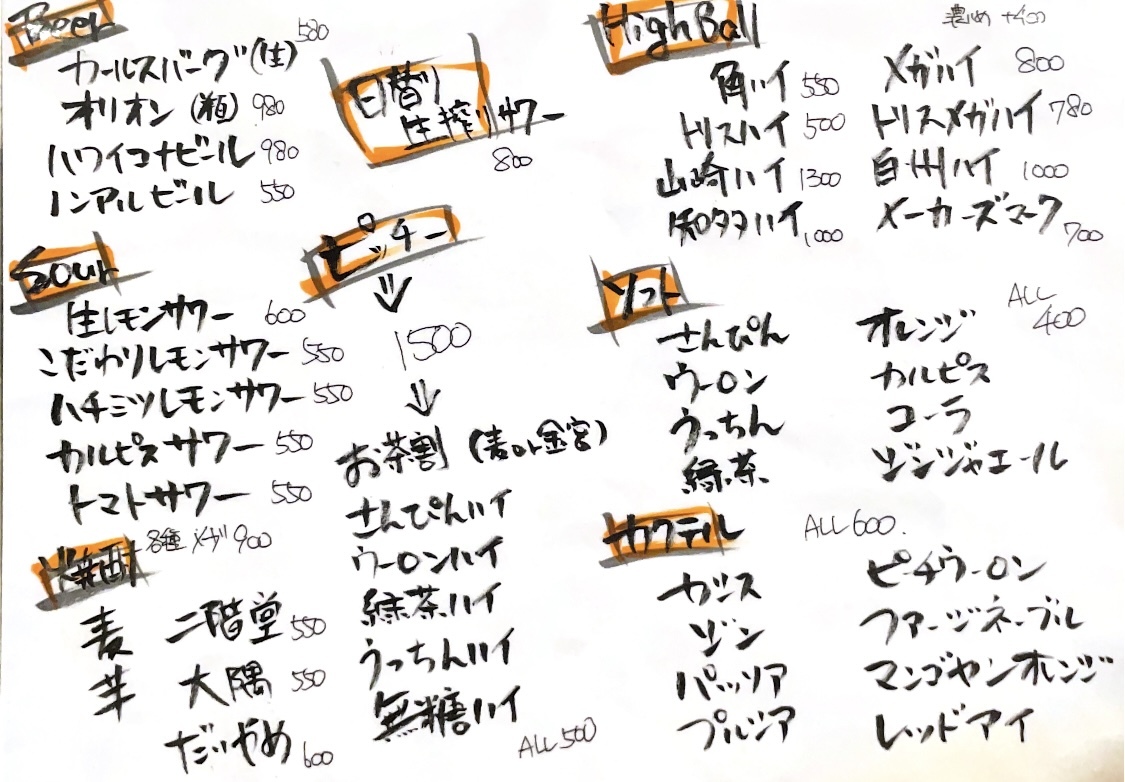 Beer
580
カールスバーグ(生)
オリオン(瓶) 980
ハワイコナビール 980
ノンアルビール 550
日替り
生搾りサワー
800
Sour
生レモンサワー 600
こだわりレモンサワー 550
ハチミツレモンサワー 550
カルピスサワー 550
トマトサワー 550
各種メガ 900
焼酎
麦 二階堂 550
芋 大隅 550
だいやめ 600
ピッチャー
1500
お茶割(麦or金宮)
さんぴんハイ
ウーロンハイ
緑茶ハイ
うっちんハイ
無糖ハイ
ALL 500
HighBall
濃いめ +400
角ハイ 550
トリスハイ 500
山崎ハイ 1300
知多ハイ 1000
メガハイ 800
トリスメガハイ 780
白州ハイ 1000
メーカーズマーク 700
ソフト
ALL
400
さんぴん
ウーロン
うっちん
緑茶
オレンジ
カルピス
コーラ
ジンジャエール
カクテル
ALL 600.
カシス
ジン
パッソア
プルシア
ピーチウーロン
ファージーネーブル
マンゴヤンオレンジ
レッドアイ